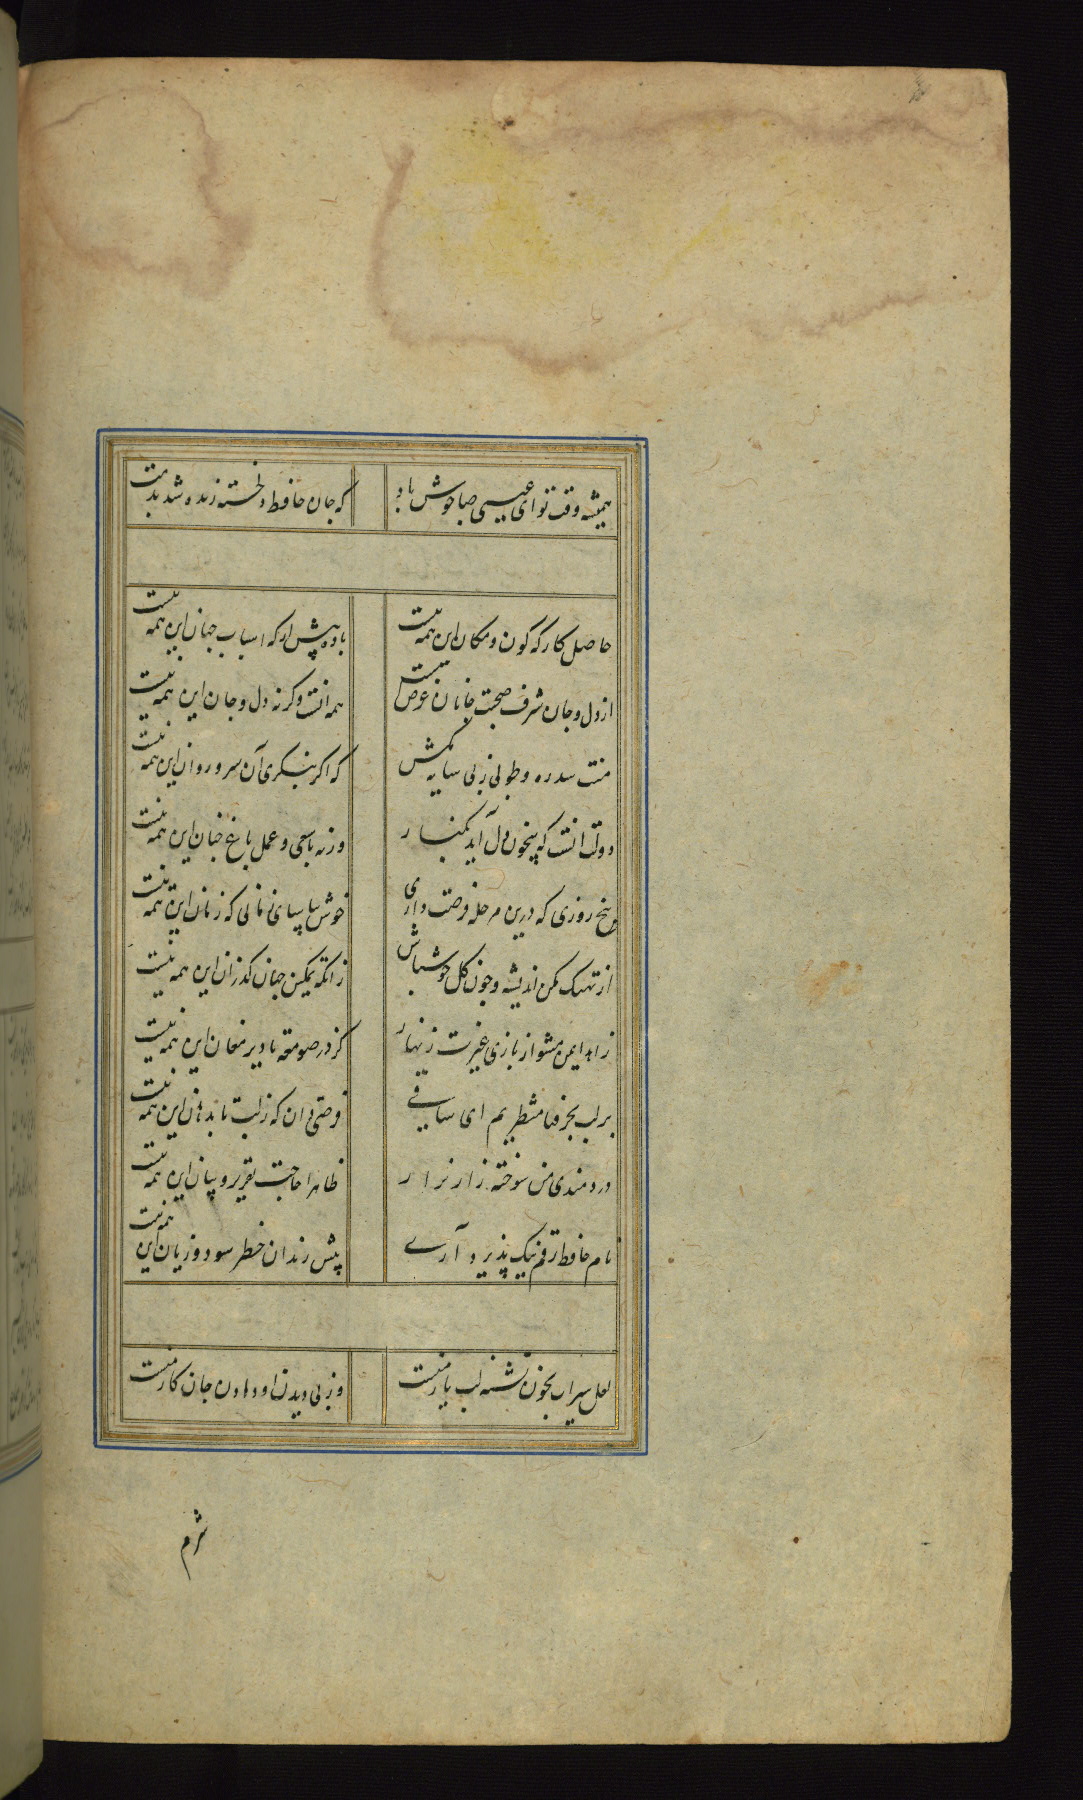 همیشه وقت تو ای عیسی صبا خوش باد که جان حافظ دلخسته زنده شد بدمت
حاصل کارگه کون و مکان این همه نیست باده پیش آر که اسباب جهان این همه نیست
از دل و جان شرف صحبت جانان غرض است همه آنست وگرنه دل و جان این همه نیست
منت سدره و طوبی ز پی سایه مکش که اگر بنگری آن سرو روان این همه نیست
دولت آنست که بیخون دل آید بکنار ورنه با سعی و عمل باغ جنان این همه نیست
پنج روزی که درین مرحله فرصت داری خوش بیاسای زمانی که زمان این همه نیست
از تهتک مکن اندیشه و چون گل خوش باش زانکه تمکین جهان گذران این همه نیست
زاهد ایمن مشو از بازی غیرت زنهار کز در صومعه تا دیر مغان این همه نیست
بر لب بحر فنا منتظریم ای ساقی فرصتی دان که ز لب تا بدهان این همه نیست
دردمندی من سوخته زار نزار ظاهرا حاجت تقریر و بیان این همه نیست
نام حافظ رقم نیک پذیرد آری پیش رندان خطر سود و زیان این همه نیست
لعل سیراب بخون تشنه لب یار منست وز پی دیدن او دادن جان کار منست
شرم